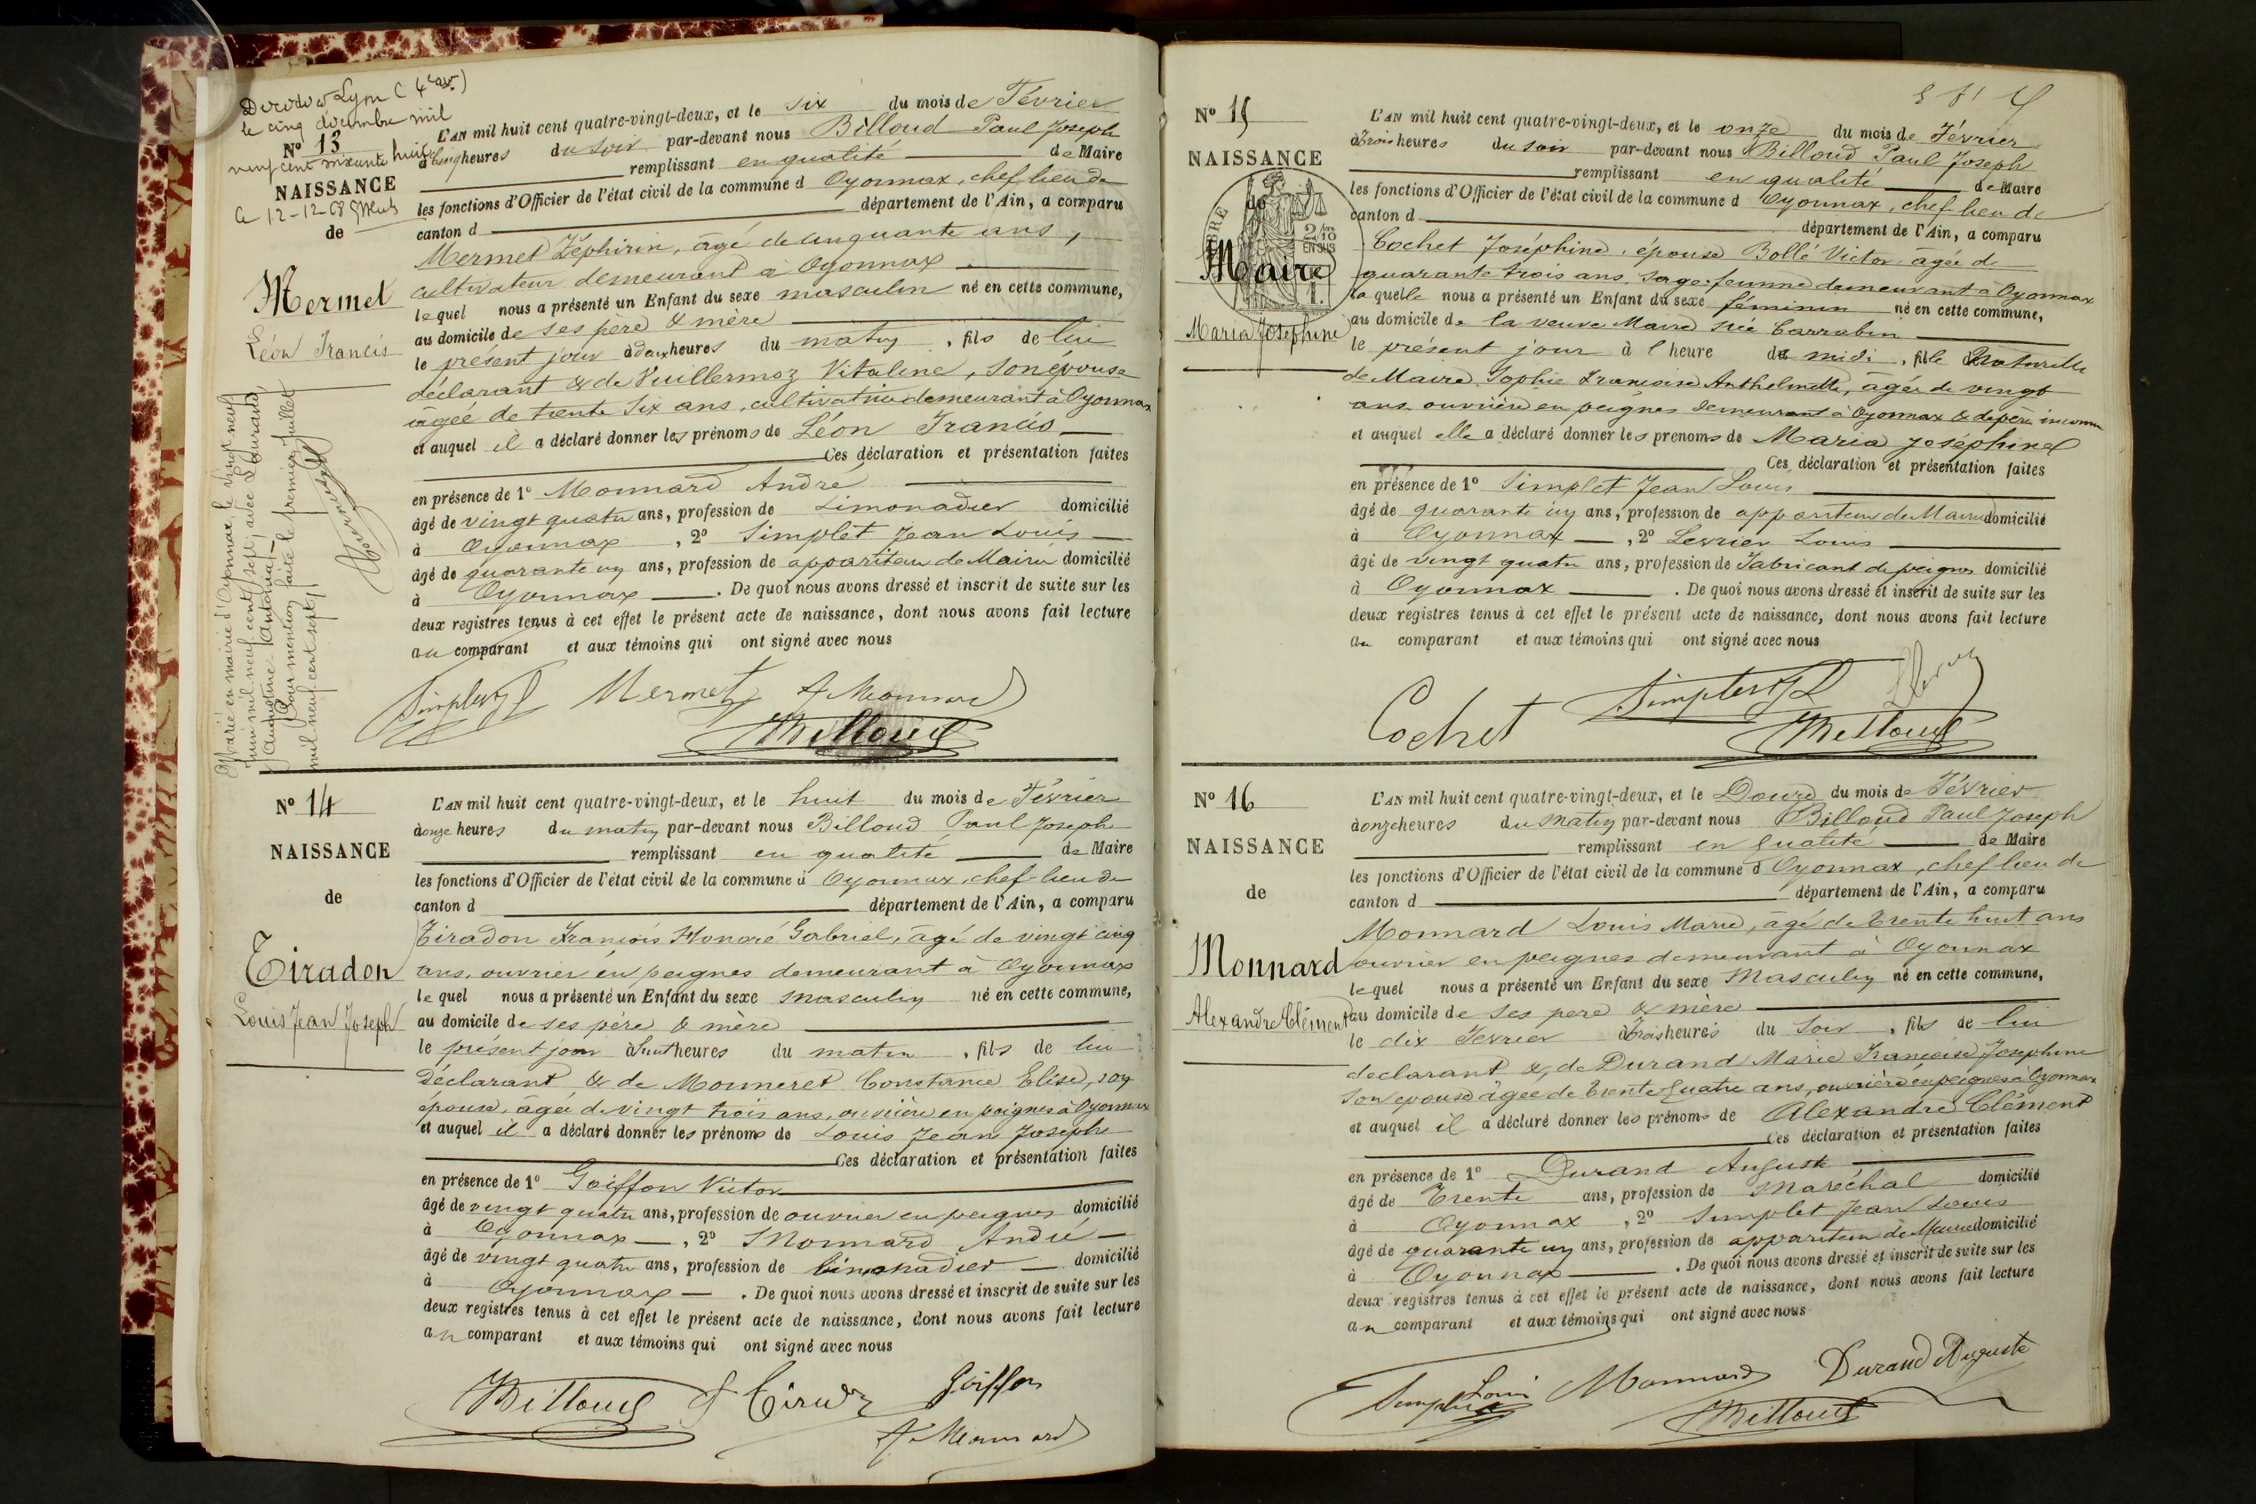 Décédé à Lyon (4e arr.)
le cinq décembre mil
neuf cent soixante huit
Le 12-12-68
No 13
NAISSANCE
de
Mermet
Léon Francis
Marié en mairie d'Oyonnax, le vingt neuf
juin mil neuf cent sept, avec
Augustine Antonia.
Pour mention faite le premier juillet
mil neuf cent sept,
L'AN mil huit cent quatre-vingt-deux, et le six du mois de Février
à cinq heures du soir par-devant nous Billoud Paul Joseph
remplissant en qualité de Maire
les fonctions d'Officier de l'état civil de la commune d Oyonnax, chef lieu de
canton d département de l'Ain, a comparu
Mermet Zéphirin, âgé de cinquante ans,
cultivateur demeurant à Oyonnax
lequel nous a présenté un Enfant du sexe masculin né en cette commune,
au domicile de ses père & mère
le présent jour à deux heures du matin, fils de lui
déclarant & de Vuillermoz Vitaline, son épouse
âgée de trente six ans, cultivatrice demeurant à Oyonnax
et auquel il a déclaré donner les prénoms de Léon Francis
Ces déclaration et présentation faites
en présence de 1o Monnard André
âgé de vingt quatre ans, profession de Limonadier domicilié
à Oyonnax, 2o Simplet Jean Louis
âgé de quarante un ans, profession de appariteur de Mairie domicilié
à Oyonnax. De quoi nous avons dressé et inscrit de suite sur les
deux registres tenus à cet effet le présent acte de naissance, dont nous avons fait lecture
au comparant et aux témoins qui ont signé avec nous
Simplet JL Mermet A Monnard
Billoud
No 14
NAISSANCE
de
Tiradon
Louis Jean Joseph
L'AN mil huit cent quatre-vingt-deux, et le huit du mois de Février
à onze heures du matin par-devant nous Billoud Paul Joseph
remplissant en qualité de Maire
les fonctions d'Officier de l'état civil de la commune d Oyonnax, chef-lieu de
canton d département de l'Ain, a comparu
Tiradon François Honoré Gabriel, âgé de vingt cinq
ans, ouvrier en peignes demeurant à Oyonnax
lequel nous a présenté un Enfant du sexe masculin né en cette commune,
au domicile de ses père & mère
le présent jour à huit heures du matin, fils de lui
déclarant & de Monneret Constance Elise, son
épouse, âgée de vingt trois ans, ouvrière en peignes à Oyonnax
et auquel il a déclaré donner les prénoms de Louis Jean Joseph
Ces déclaration et présentation faites
en présence de 1o Goiffon Victor
âgé de vingt quatre ans, profession de ouvrier en peignes domicilié
à Oyonnax, 2o Monnard André
âgé de vingt quatre ans, profession de limonadier domicilié
à Oyonnax. De quoi nous avons dressé et inscrit de suite sur les
deux registres tenus à cet effet le présent acte de naissance, dont nous avons fait lecture
au comparant et aux témoins qui ont signé avec nous
Billoud Goiffon
A Monnard
No 15
NAISSANCE
de
Maire
Maria Joséphine
2/10
EN SUS
L'AN mil huit cent quatre-vingt-deux, et le onze du mois de Février
à trois heures du soir par-devant nous Billoud Paul Joseph
remplissant en qualité de Maire
les fonctions d'Officier de l'état civil de la commune d Oyonnax, chef lieu de
canton d département de l'Ain, a comparu
Cochet Joséphine, épouse Bollé Victor âgée de
quarante trois ans, sage-femme demeurant à Oyonnax
laquelle nous a présenté un Enfant du sexe féminin né en cette commune,
au domicile de la veuve Maire née Carrabin
le présent jour à l heure de midi, fille naturelle
de Maire Sophie Françoise Anthelmette, âgée de vingt
ans ouvrière en peignes demeurant à Oyonnax & de père inconnu
et auquel elle a déclaré donner les prenoms de Maria Joséphine
Ces déclaration et présentation faites
en présence de 1o Simplet Jean Louis
âgé de quarante un ans, profession de appariteur de Mairie domicilié
à Oyonnax, 2o Levrier Louis
âgé de vingt quatre ans, profession de Fabricant de peignes domicilié
à Oyonnax. De quoi nous avons dressé et inscrit de suite sur les
deux registres tenus à cet effet le présent acte de naissance, dont nous avons fait lecture
au comparant et aux témoins qui ont signé avec nous
Cochet Simplet JL
Billoud
No 16
NAISSANCE
de
Monnard
Alexandre Clément
L'AN mil huit cent quatre-vingt-deux, et le Douze du mois de Février
à onze heures du matin par-devant nous Billoud Paul Joseph
remplissant en qualité de Maire
les fonctions d'Officier de l'état civil de la commune d Oyonnax, chef lieu de
canton d département de l'Ain, a comparu
Monnard Louis Marie, âgé de trente huit ans
ouvrier en peignes demeurant à Oyonnax
lequel nous a présenté un Enfant du sexe Masculin né en cette commune,
au domicile de ses père & mère
le dix Février à trois heures du soir, fils de lui
declarant &, de Durand Marie Françoise Josephine
son épouse âgée de trente quatre ans, ouvrière en peignes à Oyonnax
et auquel il a déclaré donner les prénoms de Alexandre Clément
Ces déclaration et présentation faites
en présence de 1o Durand Auguste
âgé de trente ans, profession de Maréchal domicilié
à Oyonnax, 2o Simplet Jean Louis
âgé de quarante un ans, profession de appariteur de Mairie domicilié
à Oyonnax. De quoi nous avons dressé et inscrit de suite sur les
deux registres tenus à cet effet le présent acte de naissance, dont nous avons fait lecture
au comparant et aux témoins qui ont signé avec nous
Simplet Louis Monnard Durand Auguste
Billoud